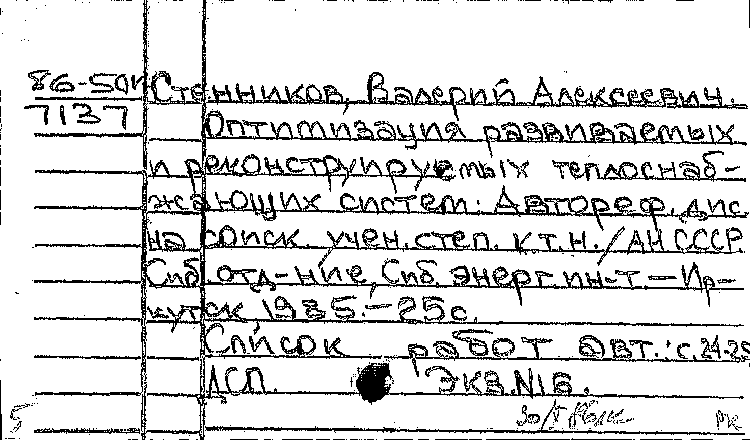 86-50н Стенников, Валерий Алексеевич.
7137 Оптимизация развиваемых
и реконструируемых теплоснаб-
жающих систем: Автореф. дис.
на соиск. учен. степ. к.т.н./АН СССР.
Сиб. отд-ние, Сиб. энерг. ин-т.—Ир-
кутск, 1985.—25с.
Список работ авт.: с.24-25
ДСП. Экз.N16.
5 30/V